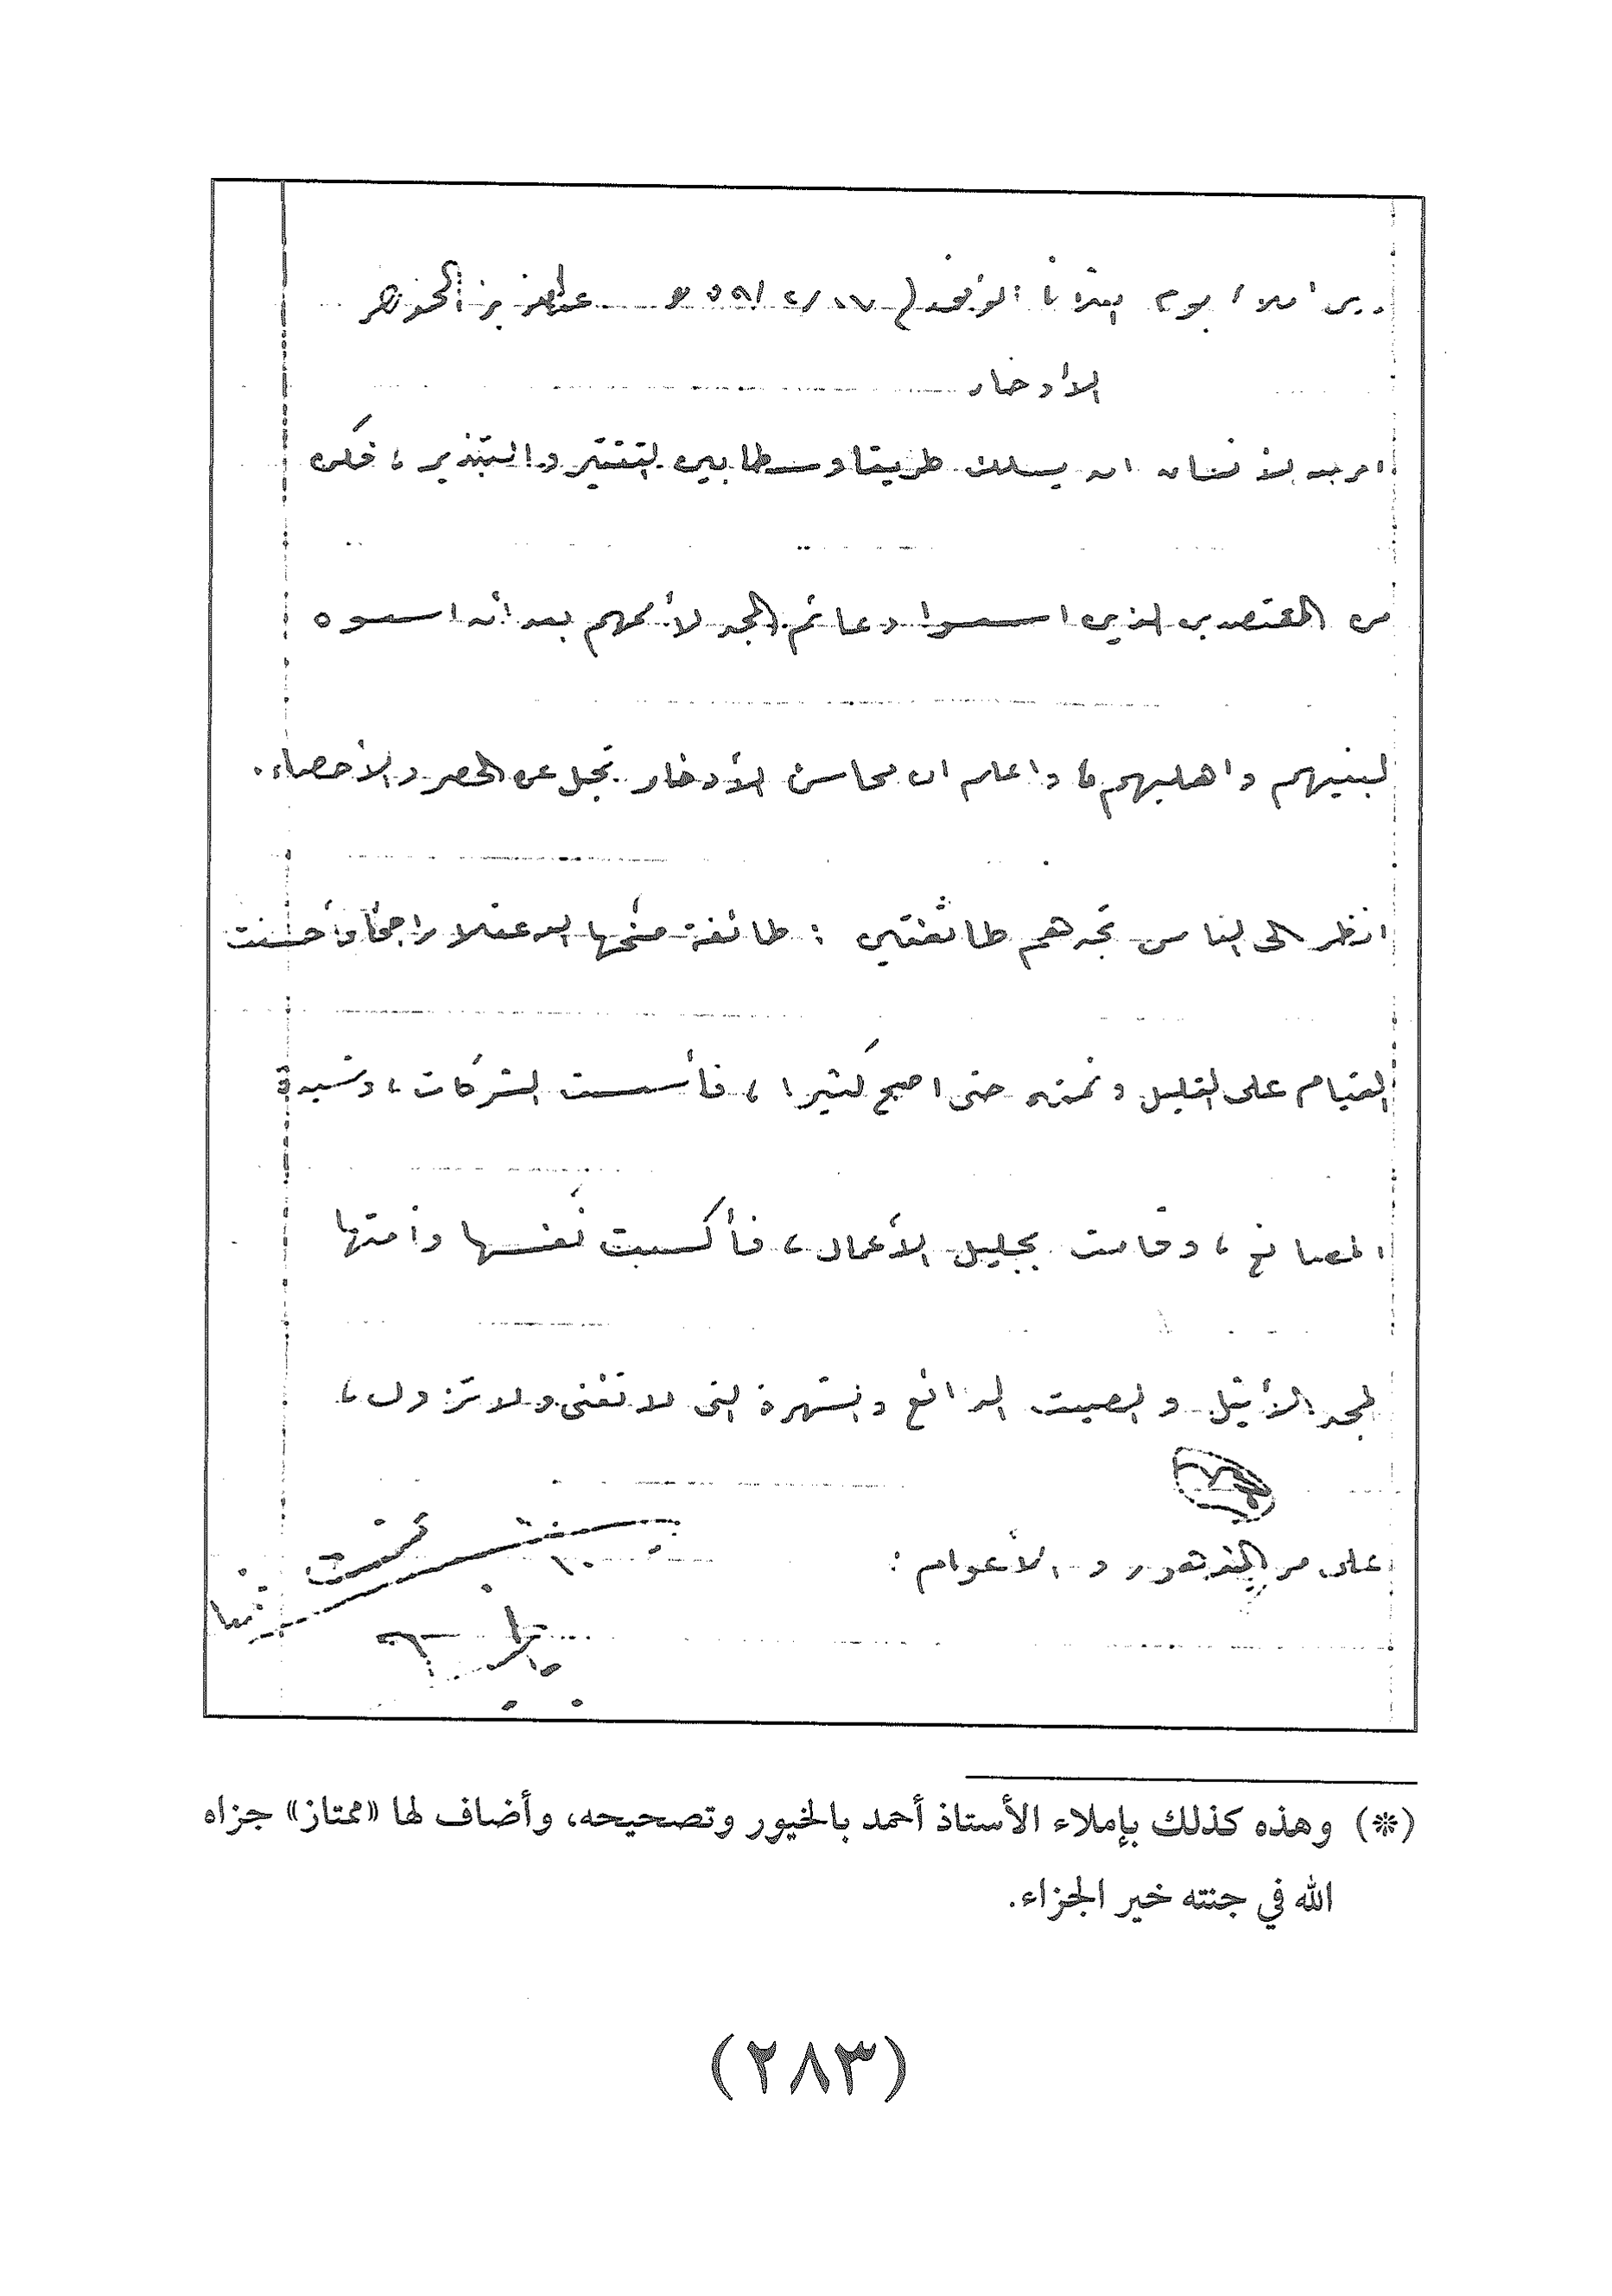 درس املاء يوم الثلاثاء الموافق ١٧/ ٢/ ٥٩ ١٣ه عبدالعزيز الخويطر
الأدخار
امر به الأنسان ان يسلك طريقا وسطا بين التقتير والتبذير ، فكن
من المقتصدين الذين اسسوا دعائم المجد لأممهم بعد أن اسسوه
لبنيهم واهليهم ، واعلم ان محاسن الأدخار تجل عن الحصر والأحصاء .
انظر الى الناس تجدهم طائفتين : طائفة منحها الله عقلا راجحا وأحسنت
القيام على القليل ونمته حتى اصبح كثيرا ، فأسست الشركات ، وشيدة
المصانع ، وقامت بجليل الأعمال ، فأكسبت نفسها وأمتها
المجد الأثيل والصيت الذائع والشهرة التى لا تفنى ولا تزول ،
على مر الدهور و الأعوام :
١٠
(*) وهذه كذلك بإملاء الأستاذ أحمد بالخيور وتصحيحه، وأضاف لها «ممتاز» جزاه
الله في جنته خير الجزاء.
(٢٨٣)